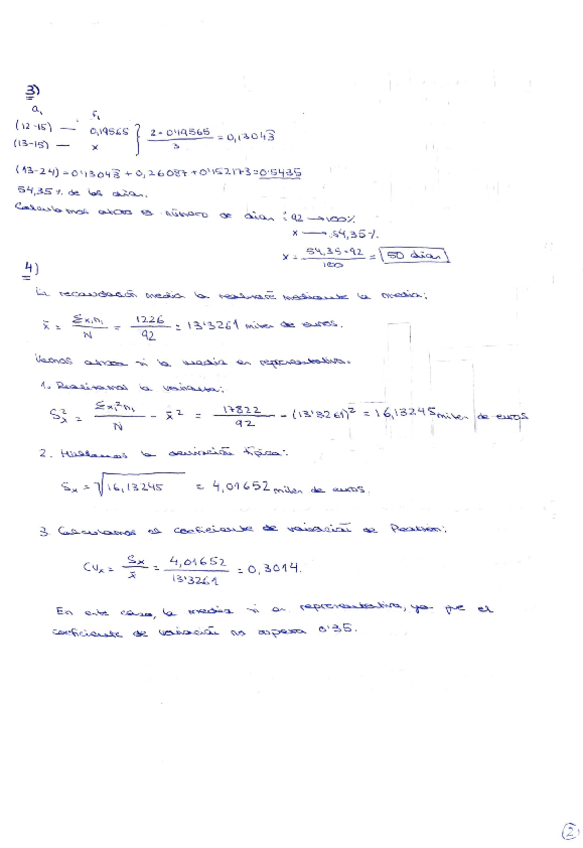 3)
aᵢ fᵢ
(12-15) — 0,19565
(13-15) — x } 2·0'19565 / 3 = 0,13043̄
(13-24) = 0'13043̄ + 0,26087 + 0'152173 = 0'5435
54,35% de los días.
Calculamos ahora el número de días: 92 → 100%
x → 54,35%
x = 54,35·92 / 100 = 50 días
4)
La recaudación media la realizaré mediante la media:
x̄ = Σxᵢnᵢ / N = 1226 / 92 = 13'3261 miles de euros.
Veamos ahora si la media es representativa.
1. Realizamos la varianza:
Sₓ² = Σxᵢ²nᵢ / N - x̄² = 17822 / 92 - (13'3261)² = 16,13245 miles de euros
2. Hallamos la desviación típica:
Sₓ = √16,13245 = 4,01652 miles de euros.
3. Calculamos el coeficiente de variación de Pearson:
CVₓ = Sₓ / x̄ = 4,01652 / 13'3261 = 0,3014.
En este caso, la media si es representativa, ya que el
coeficiente de variación no supera 0'35.
2